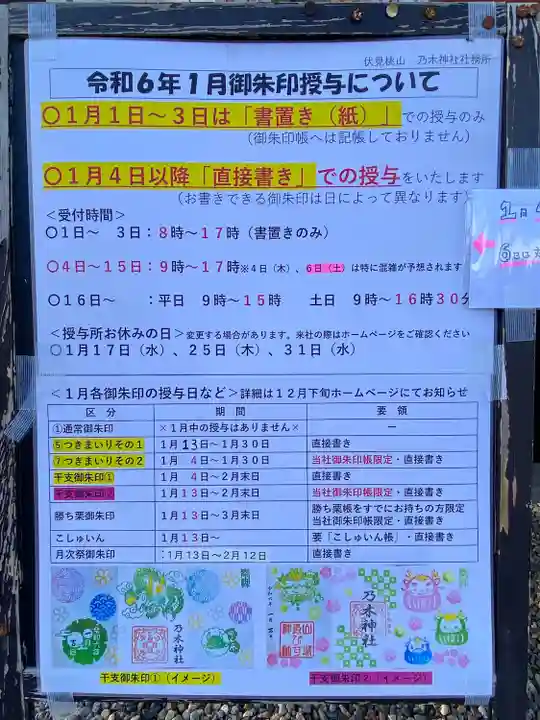 伏見桃山　乃木神社社務所
令和６年１月御朱印授与について
〇１月１日～３日は「書置き（紙）」での授与のみ
（御朱印帳へは記帳しておりません）
〇１月４日以降「直接書き」での授与をいたします
（お書きできる御朱印は日によって異なります）
＜受付時間＞
〇１日～　３日：８時～１７時（書置きのみ）
〇４日～１５日：９時～１７時※４日（木）、６日（土）は特に混雑が予想されます
〇１６日～　：平日　９時～１５時　土日　９時～１６時３０分
＜授与所お休みの日＞変更する場合があります。来社の際はホームページをご確認ください
〇１月１７日（水）、２５日（木）、３１日（水）
＜１月各御朱印の授与日など＞詳細は１２月下旬ホームページにてお知らせ
区　分　期　間　要　領
①通常御朱印　×１月中の授与はありません×　ー
⑤つきまいりその１　１月１３日～１月３０日　直接書き
⑦つきまいりその２　１月　４日～１月３０日　当社御朱印帳限定・直接書き
干支御朱印①　１月　４日～２月末日　直接書き
干支御朱印２　１月１３日～２月末日　当社御朱印帳限定・直接書き
勝ち栗御朱印　１月１３日～３月末日　勝ち栗帳をすでにお持ちの方限定
当社御朱印帳限定・直接書き
こしゅいん　１月１３日～　要「こしゅいん帳」・直接書き
月次祭御朱印　：１月１３日～２月１２日　直接書き
乃木神社
乃木神社
干支御朱印①（イメージ）
干支御朱印２（イメージ）
１日
６日は